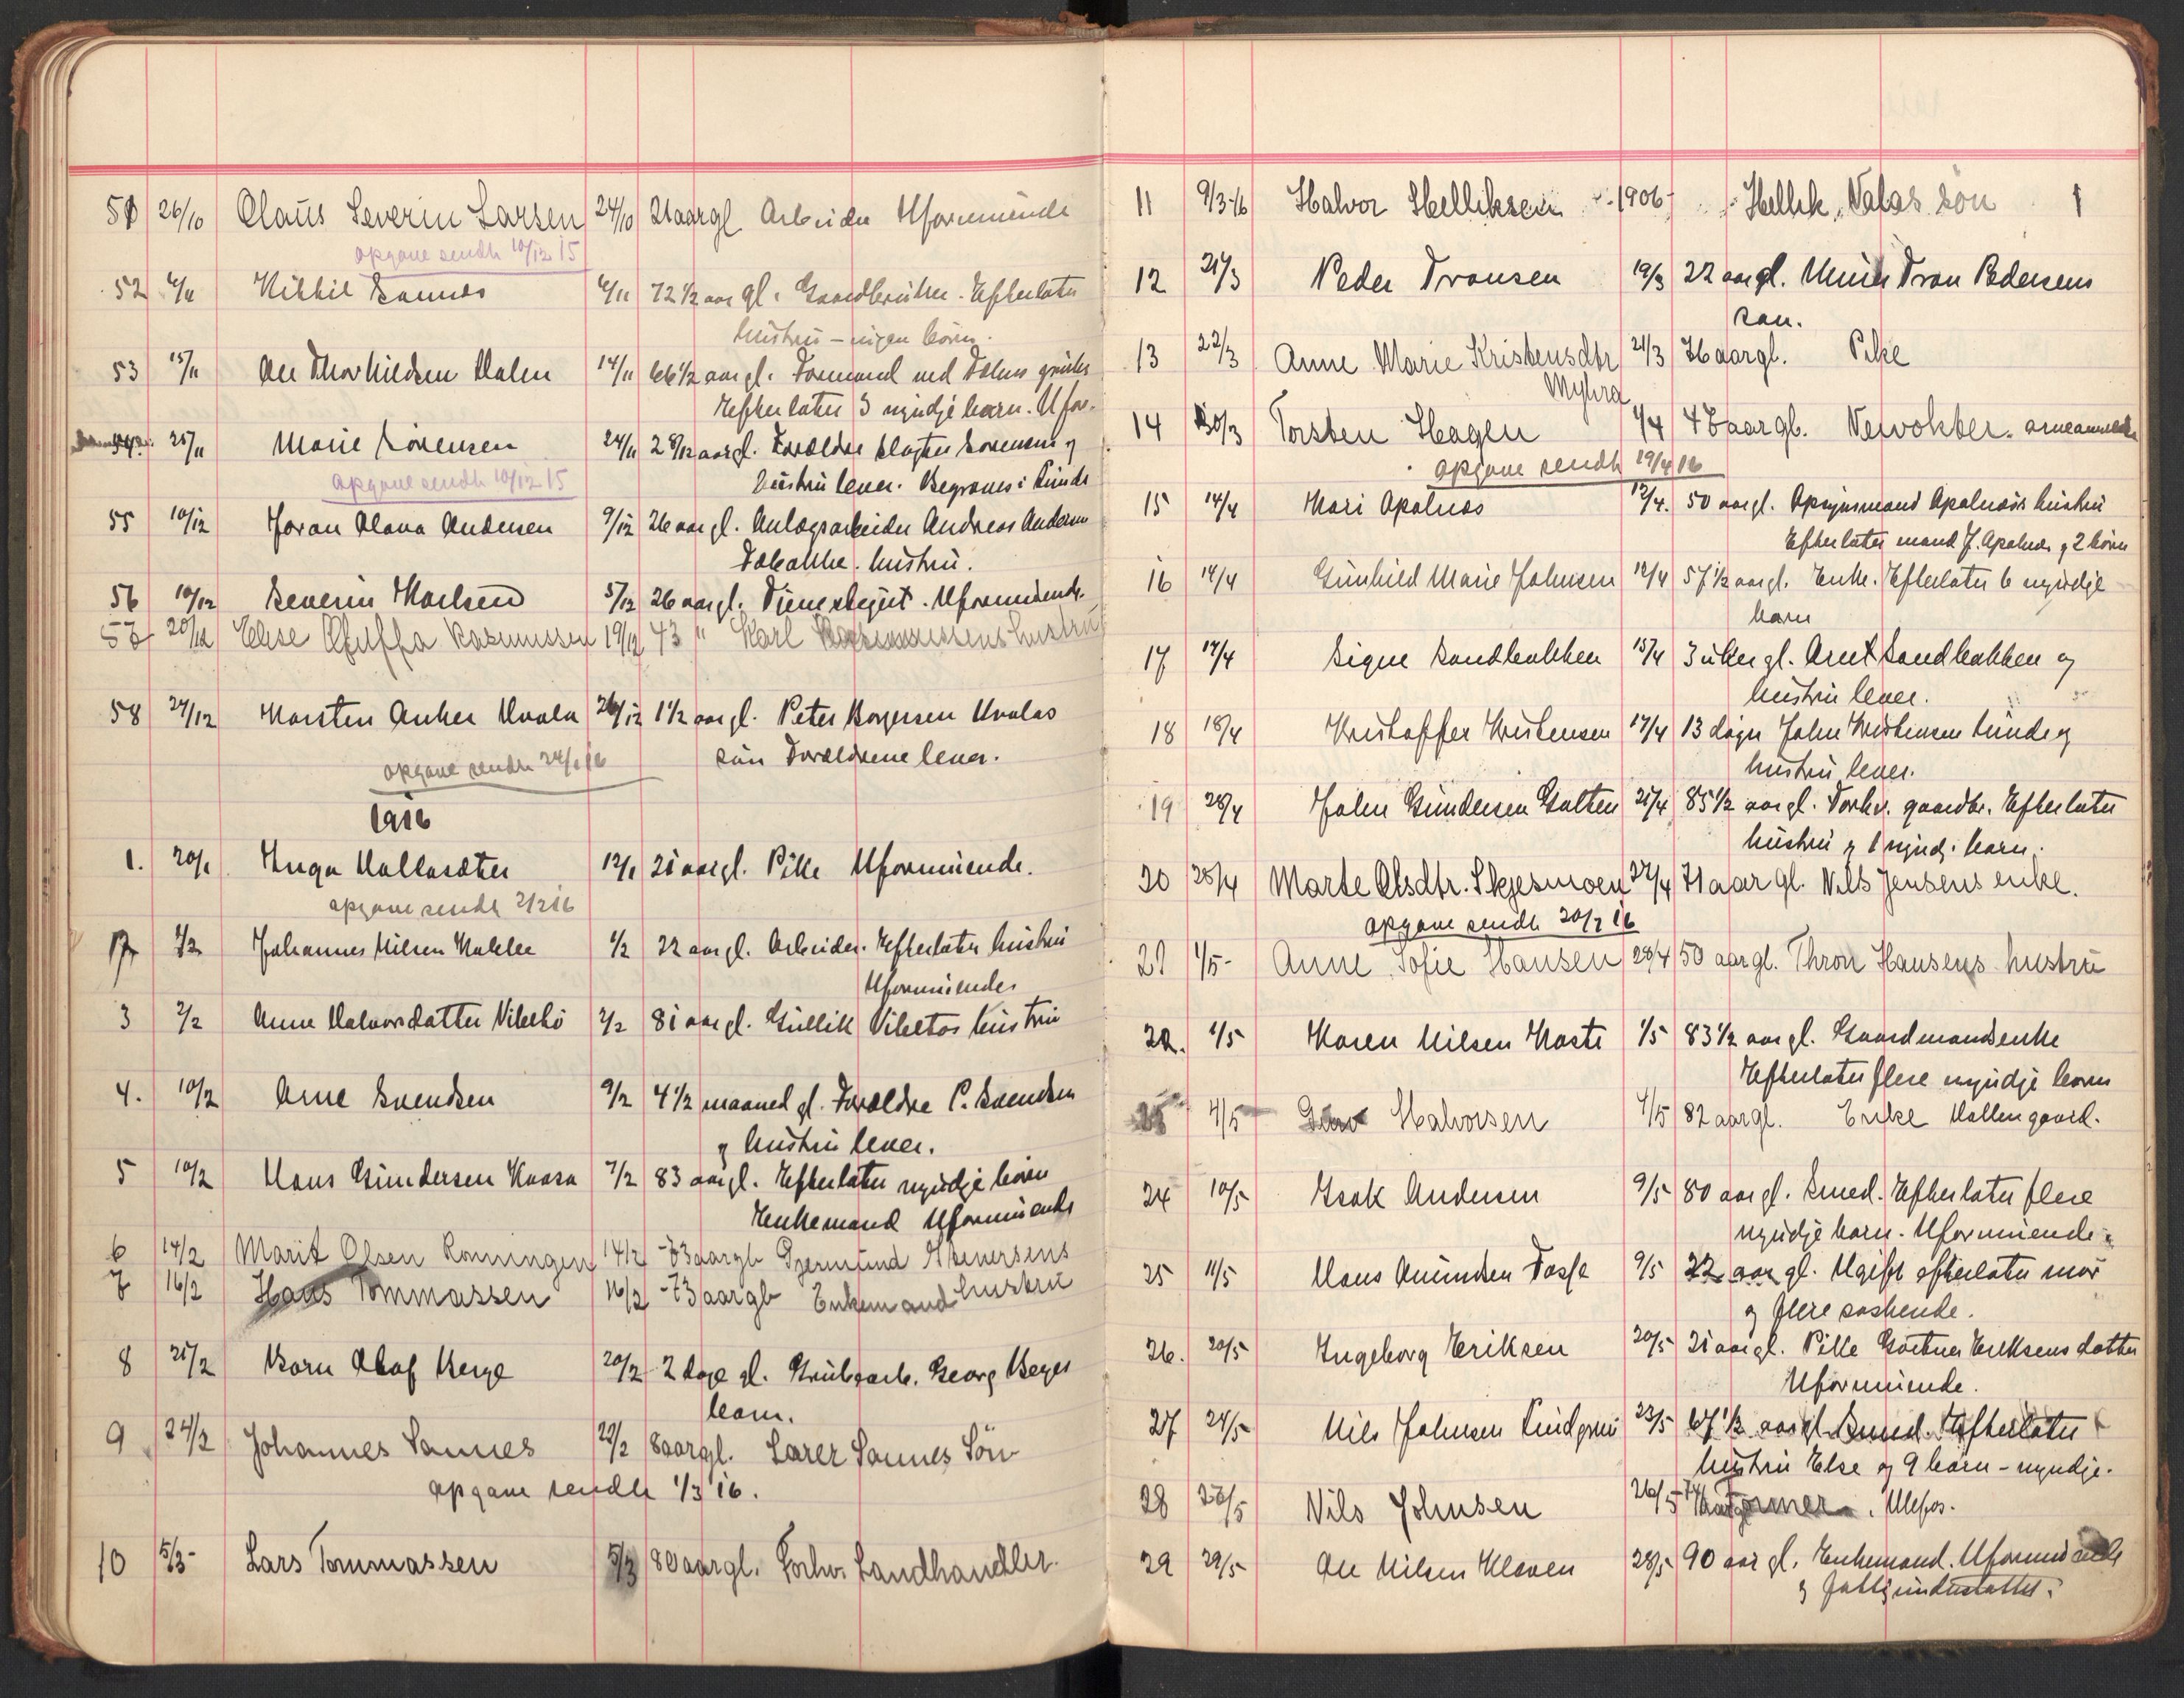 51 26/10 Olaus Severin Larsen 24/10 21 aargl Arbeider Uformuende
opgave sendt 10/12 15
52 Kittil Sannes 72 1/2 aar gl. Gaardbruker. Efterlater
hustru – ingen börn.
53 15/11 Ole Thorkildsen Dalen 14/11 66 1/2 aar gl. Formand ved Fehns gruber
Efterlater 3 myndje barn. Ufor.
54 25/11 Marie Sörensen 24/11 2 8/12 aargl. Forældre Slagter Sörensens og
hustru lever. Begraves i Lunde
opgave sendt 10/12 15
55 10/12 Joran Olava Andersen 9/12 26 aar gl. Anlægsarbeider Andreas Andersen
hustru.
56 10/12 Severin Karlsen 5/12 26 aar gl. Tjenestegut. Uformuende.
57 20/12 Else Rasmussen 19/12 43 " Karl Rasmussens hustru
58 27/12 Karsten Anker Kvala 26/12 1 1/2 aar gl. Peter Borgersen Kvalas
sön Forældrene lever.
opgave sendt 24/1 16
1916
1. 20/1 Inga Hallasæter 12/1 21 aar gl. Pike Uformuende.
opgave sendt 2/2 16
2 4/2 Johannes Nilsen 1/2 22 aar gl. Arbeider. Efterlater hustru
Uformuendes
3 7/2 Anne Halvorsdatter Vibetö 7/2 81 aar gl. Gullik Vibetos hustru
4. 10/2 Arne Svendsen 9/2 4 1/2 maaned gl. Forældre P. Svendsen
og hustru lever.
5 10/2 Hans Gundersen Kaasa 7/2 83 aar gl. Efterlater myndje börn
Enkemand Uformuende
6 14/2 Marit Olsen Ronningen 14/2 - 73 aargl Gjermund Stenersens
hustru
7 16/2 Hans Tommassen 16/2 - 73 aargl Enkemand
8 21/2 Barn Olaf Berge 20/2 2 dage gl. Grubearb. Georg Berges
barn.
9 24/2 Johannes Sannes 22/2 8 aargl. Lærer Sannes Sön
opgave sendt 1/3 16.
10 5/3- Lars Tommassen 5/3 80 aargl. Forhv. Landhandler.
11 9/3-16 Halvor Helliksen - 1906 - Hellik Valas sön 1
12 21/3 Peder Tronsen 19/3 22 aar gl. Murer Tron Pedersens
sön.
13 22/3 Anne Marie Kristensdtr 21/3 76 aargl. Pike
Myhra
14 30/3 Torsten Hagen 1/4 48 aar gl.
opgave sendt 19/4 16
15 14/4 Kari Apalnæs 12/4. 50 aar gl. Opsynsmand Apalnæs hustru
Efterlater mand J. Apalnæs og 2 börn
16 14/4 Gunhild Marie Johnsen 12/4 57 1/2 aargl. Enke. Efterlater 6 myndje
barn
17 17/4 Signe Sandbakken 15/4 3 uker gl. Arnt Sandbakken og
hustru lever.
18 18/4 Kristoffer Kristensen 17/4 13 dager John Kristensen Lunde og
hustru lever.
19 28/4 John Gundersen Galten 21/4 85 1/2 aar gl. Forhv. gaardbr. Efterlater
hustru og 1 myndj. barn.
20 28/4 Marte Olsdtr. Skjesmoen 27/4 71 aar gl. Nils Jensens enke.
opgave sendt 20/7 16
21 1/5- Anne Sofie Hansen 28/4 50 aar gl. Thron Hansens hustru
22. 4/5 Karen Nilsen Kaste 1/5 83 1/2 aar gl. Gaardmandsenke
Efterlater flere myndje börn
4/5 Halvorsen 4/5 82 aargl. Enke Hollen gaard.
24 10/5 Isak Andersen 9/5 80 aar gl. Smed. Efterlater flere
myndje barn. Uformuende.
25 11/5 Hans Amundsen Fosse 9/5 22 aar gl. Ugift efterlater mor
og flere söskende.
26. 20/5 Ingeborg Eriksen 20/5 21 aar gl. Pike Gartner Eriksens datter
Uformuende.
27 24/5 Nils Johnsen Lindgren 23/5 67 1/2 aar gl. Smed. Efterlater
hustru Else og 9 barn – myndje.
28 26/5 Nils Johnsen 26/5 74 aargl Former. Ulefos.
29 29/5 Ole Nilsen Kleven 28/5 90 aar gl. Enkemand. Uformuende
og fattigunderstöttet.